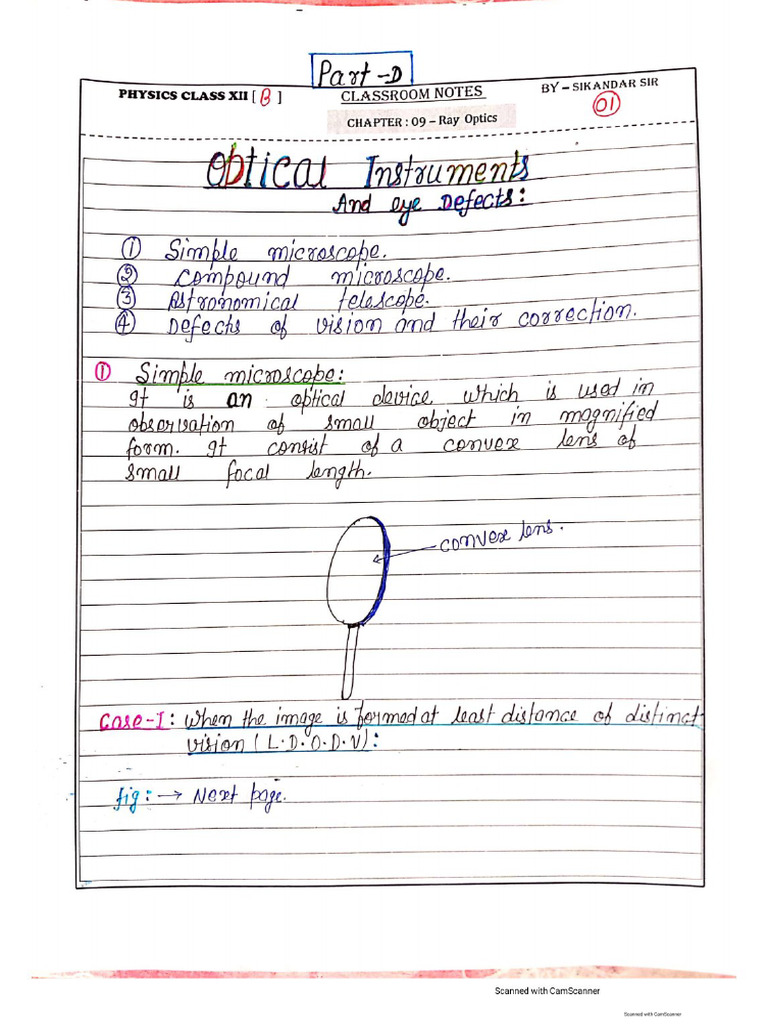 Part-D
PHYSICS CLASS XII [ B ]
CLASSROOM NOTES
BY – SIKANDAR SIR
01
CHAPTER : 09 – Ray Optics
Optical Instruments
And eye Defects:
① Simple microscope.
② Compound microscope.
③ Astronomical telescope.
④ Defects of vision and their correction.
① Simple microscope:
It is an optical device which is used in
observation of small object in magnified
form. It consist of a convex lens of
small focal length.
convex lens.
Case-I: When the image is formed at least distance of distinct
vision (L.D.O.D.V):
fig: → Next page.
Scanned with CamScanner
Scanned with CamScanner